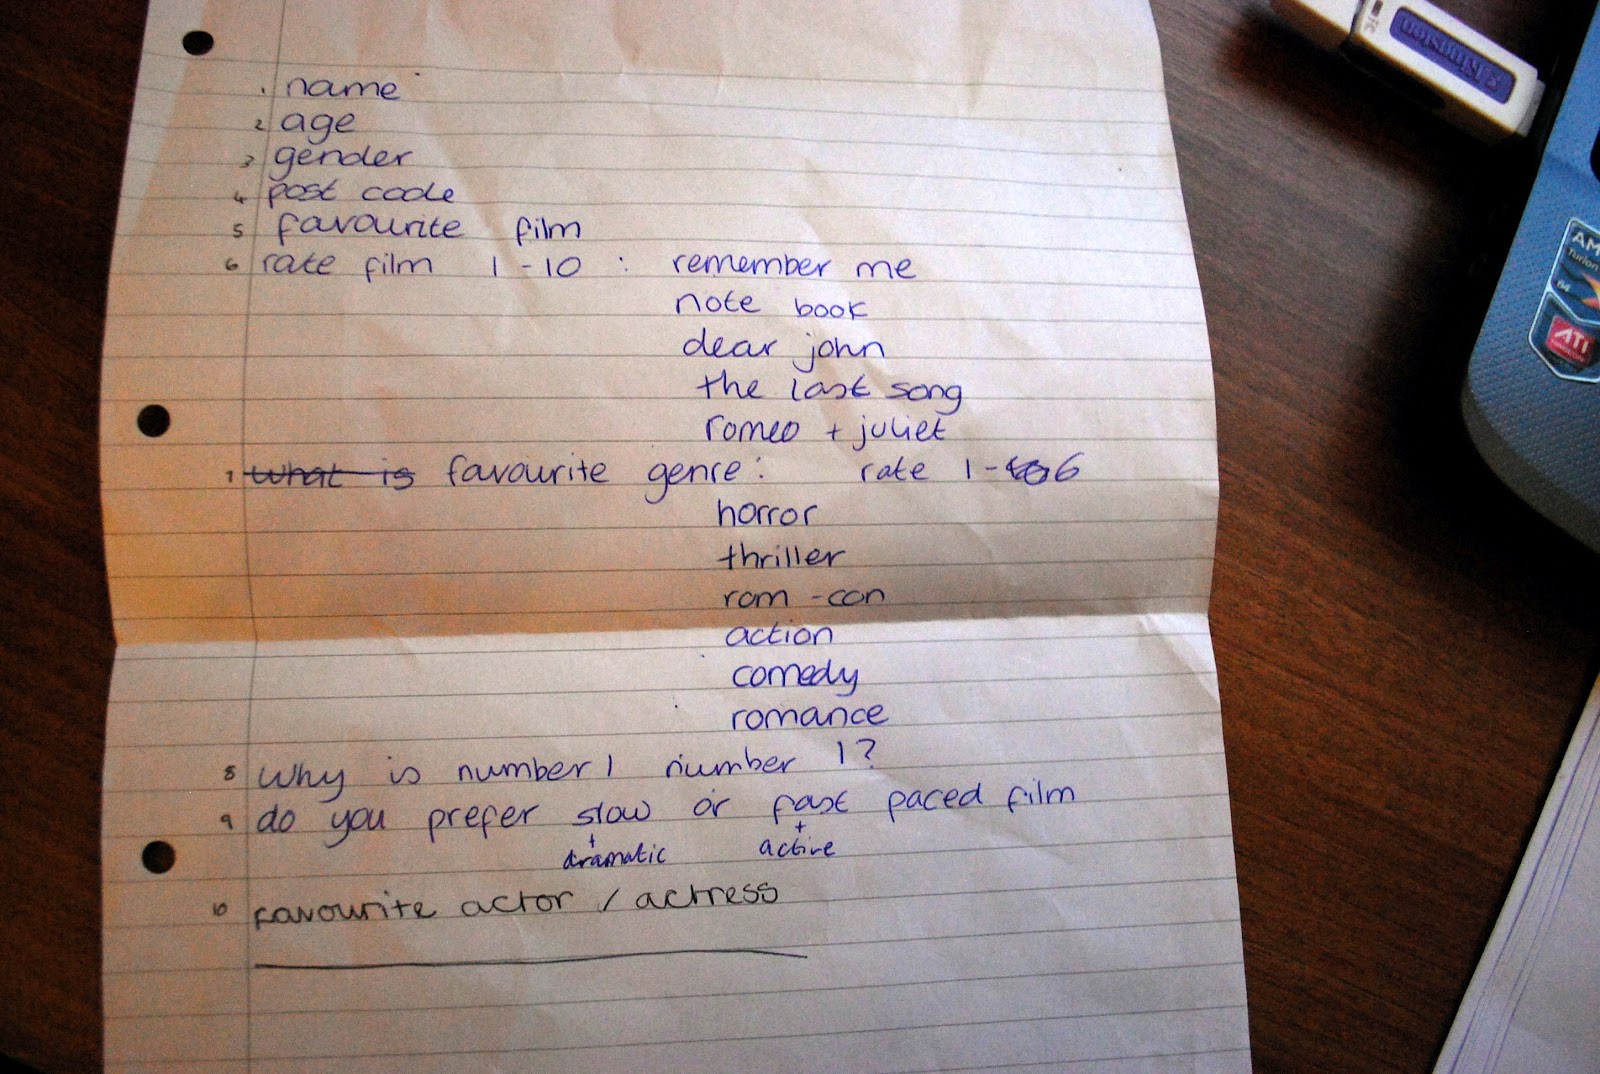 1 name
2 age
3 gender
4 post code
5 favourite film
6 rate film 1-10 : remember me
note book
dear john
the last song
romeo + juliet
7 What is favourite genre: rate 1-to6
horror
thriller
rom-con
action
comedy
romance
8 Why is number 1 number 1?
9 do you prefer slow or fast paced film
+ +
dramatic active
10 favourite actor / actress
Kingston
AM
Turion
64
ATI